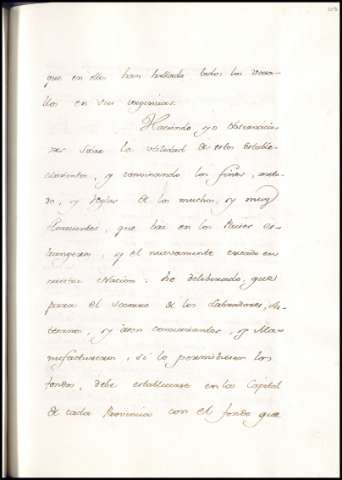 que en ellos han hallado todos los vasa-
llos en sus urgencias.
Haciendo yo observacio-
nes sobre la utilidad de estos estable-
cimientos, y convinando los fines, meto-
do, y reglas de los muchos, y muy
florecientes, que hai en los Paises es-
trangeros, y el nuevamente creado en
nuestra Nacion: he deliberado, que
para el socorro de los Labradores, Ar-
tesanos, y aun comerciantes, y Ma-
nufactureros, si lo permitieren los
fondos, debe establecerse en las Capital
de cada Provincia con el fondo que